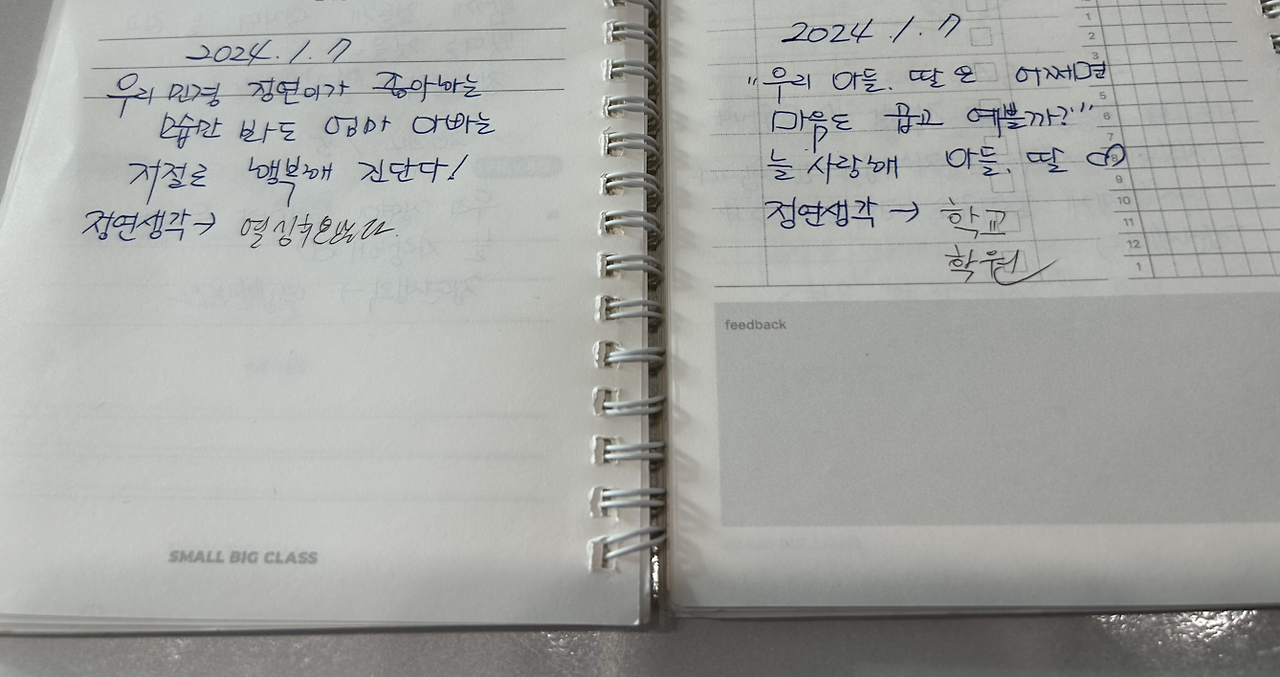 2024. 1. 7
우리 민경 정연이가 좋아하는
모습만 봐도 엄마 아빠는
저절로 행복해 진단다!
정연생각→
SMALL BIG CLASS
2024. 1. 7
"우리 아들. 딸은 어쩌면
마음도 곱고 예쁠까?"
늘 사랑해 아들. 딸
정연생각 → 학교
학원
feedback
1
2
3
5
6
7
8
9
10
11
12
1